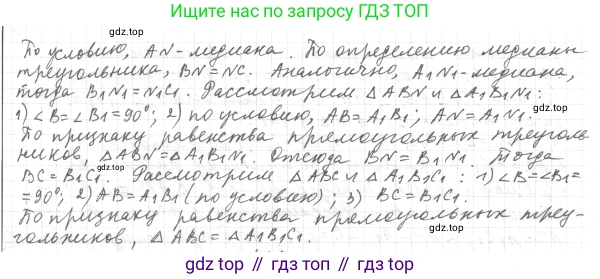 Ищите нас по запросу ГДЗ ТОП
gdz.top
По условию, AN - медиана. По определению медианы
треугольника, BN = NC. Аналогично, A1N1 - медиана,
тогда B1N1 = N1C1. Рассмотрим △ABN и △A1B1N1:
1) ∠B = ∠B1 = 90°; 2) по условию, AB = A1B1; AN = A1N1.
По признаку равенства прямоугольных треуголь
ников, △ABN = △A1B1N1. Отсюда BN = B1N1. Тогда
BC = B1C1. Рассмотрим △ABC и △A1B1C1: 1) ∠B = ∠B1 =
= 90°; 2) AB = A1B1 (по условию); 3) BC = B1C1.
По признаку равенства прямоугольных треу-
гольников, △ABC = △A1B1C1.
gdz.top
gdz.top // гдз.топ // gdz.top